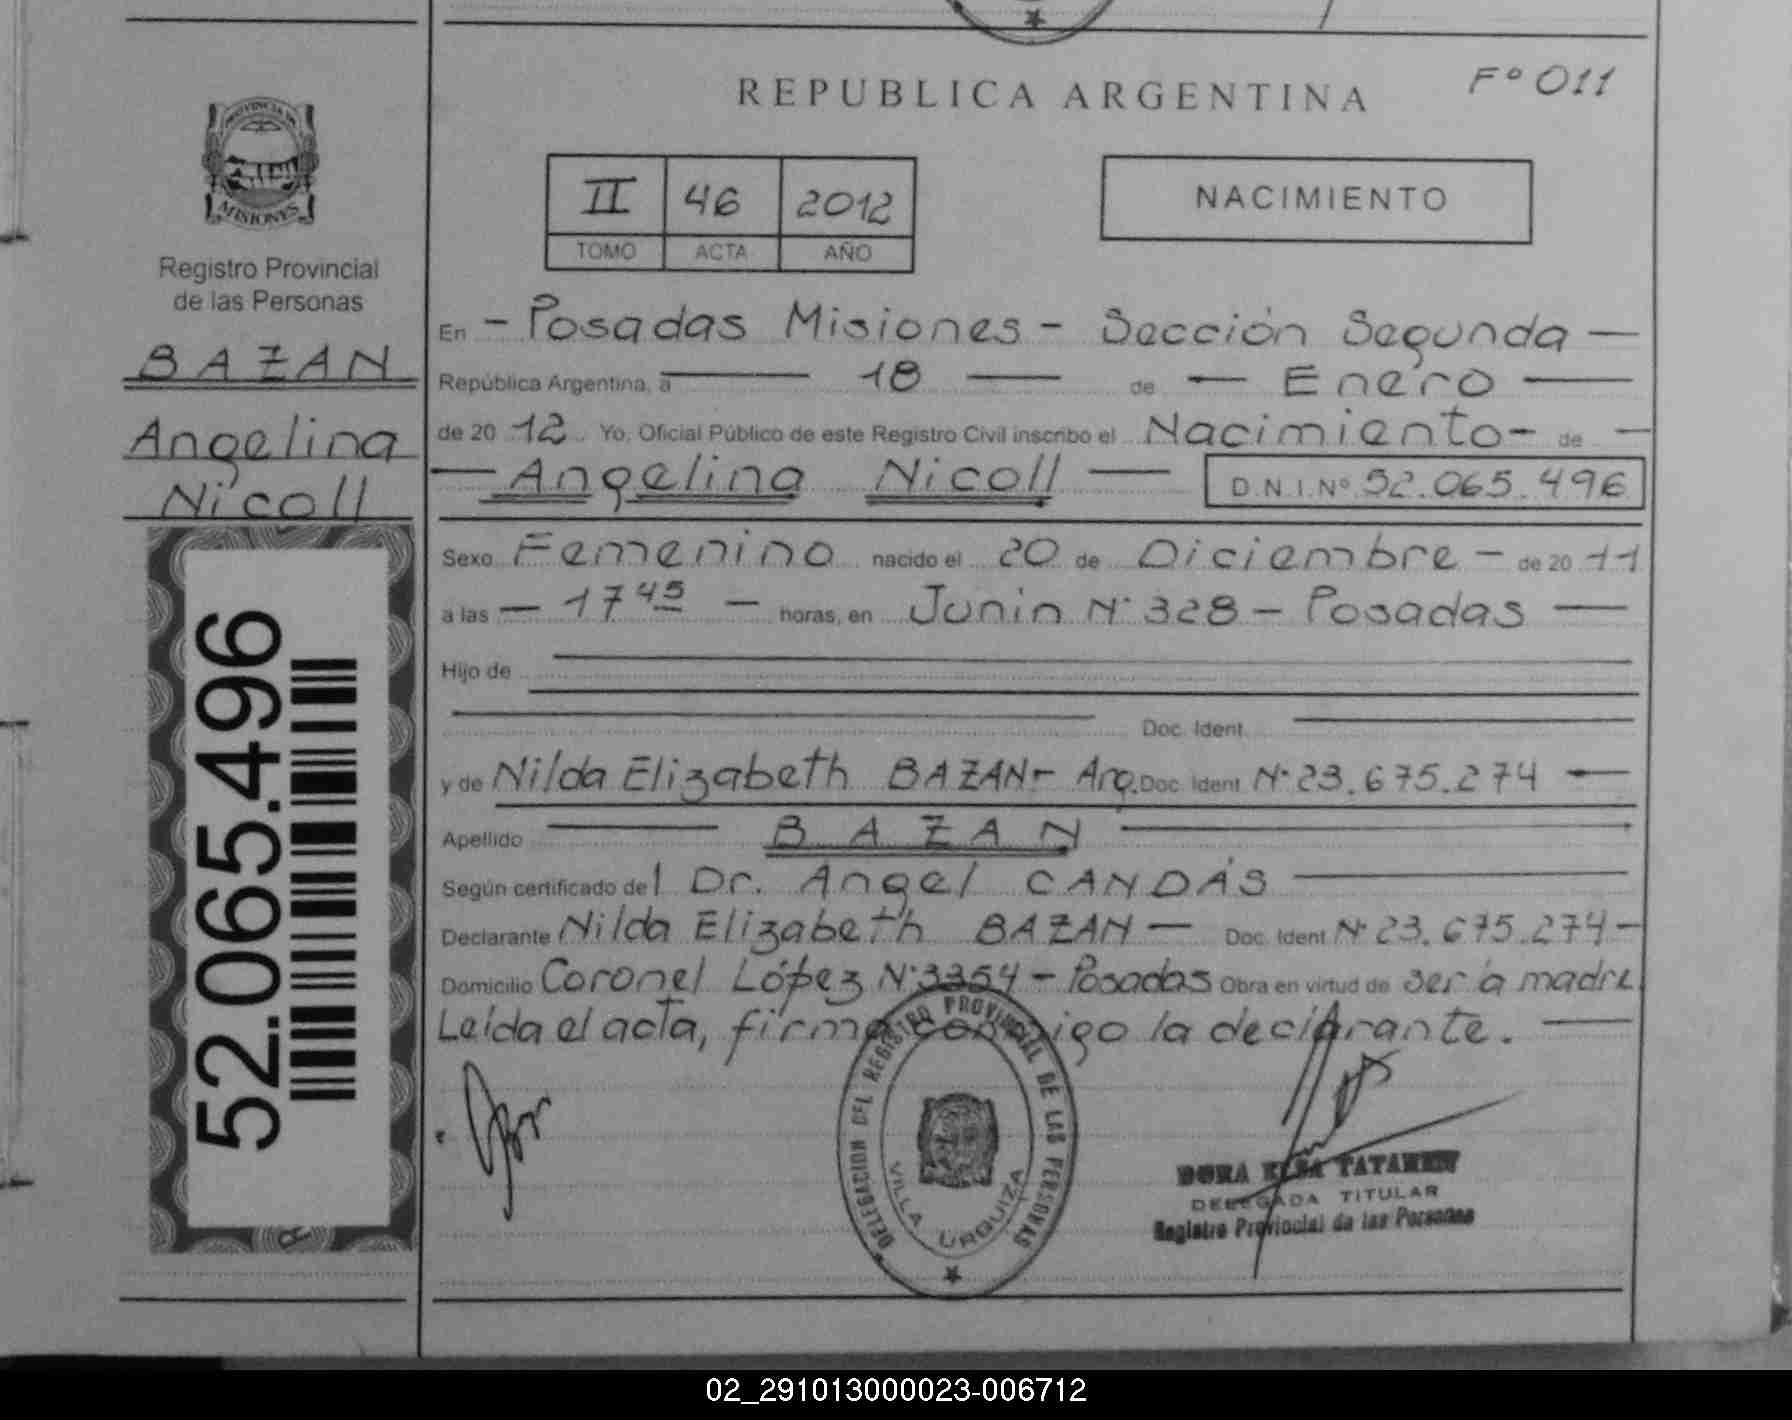 REPUBLICA ARGENTINA
Fº 011
PROVINCIA DE
MISIONES
Registro Provincial
de las Personas
BAZAN
Angelina
Nicoll
52.065.496
II 46 2012
TOMO ACTA AÑO
NACIMIENTO
En - Posadas Misiones - Sección Segunda -
República Argentina, a 18 de - Enero
de 20 12 Yo, Oficial Público de este Registro Civil inscribo el Nacimiento - de -
- Angelina Nicoll - D.N.I.Nº 52.065.496
Sexo Femenino nacido el 20 de Diciembre - de 20 11
a las - 17 45 - horas, en Junin Nº 328 - Posadas -
Hijo de
Doc. Ident.
y de Nilda Elizabeth BAZAN - Arg. Doc. Ident. Nº 23.675.274 -
Apellido BAZAN
Según certificado del Dr. Angel CANDÁS
Declarante Nilda Elizabeth BAZAN - Doc. Ident. Nº 23.675.274 -
Domicilio Coronel López Nº 3354 - Posadas Obra en virtud de ser la madre
Leída el acta, firma conmigo la declarante. -
DELEGACION DEL REGISTRO PROVINCIAL DE LAS PERSONAS
VILLA URQUIZA
DORA ELSA
DELEGADA TITULAR
Registro Provincial de las Personas
02_291013000023-006712